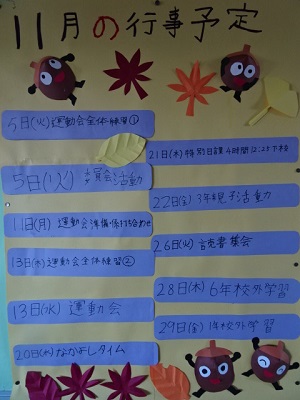 11月の行事予定
5日(火)運動会全体練習①
5日(火) 委員会活動
11日(月) 運動会準備・係打ち合わせ
13日(水)運動会全体練習②
13日(水) 運動会
20日(水)なかよしタイム
21日(木)特別日課4時間
22日(金)3年親子活動
26日(火)読書集会
28日(木)6年校外学習
29日(金)1年校外学習